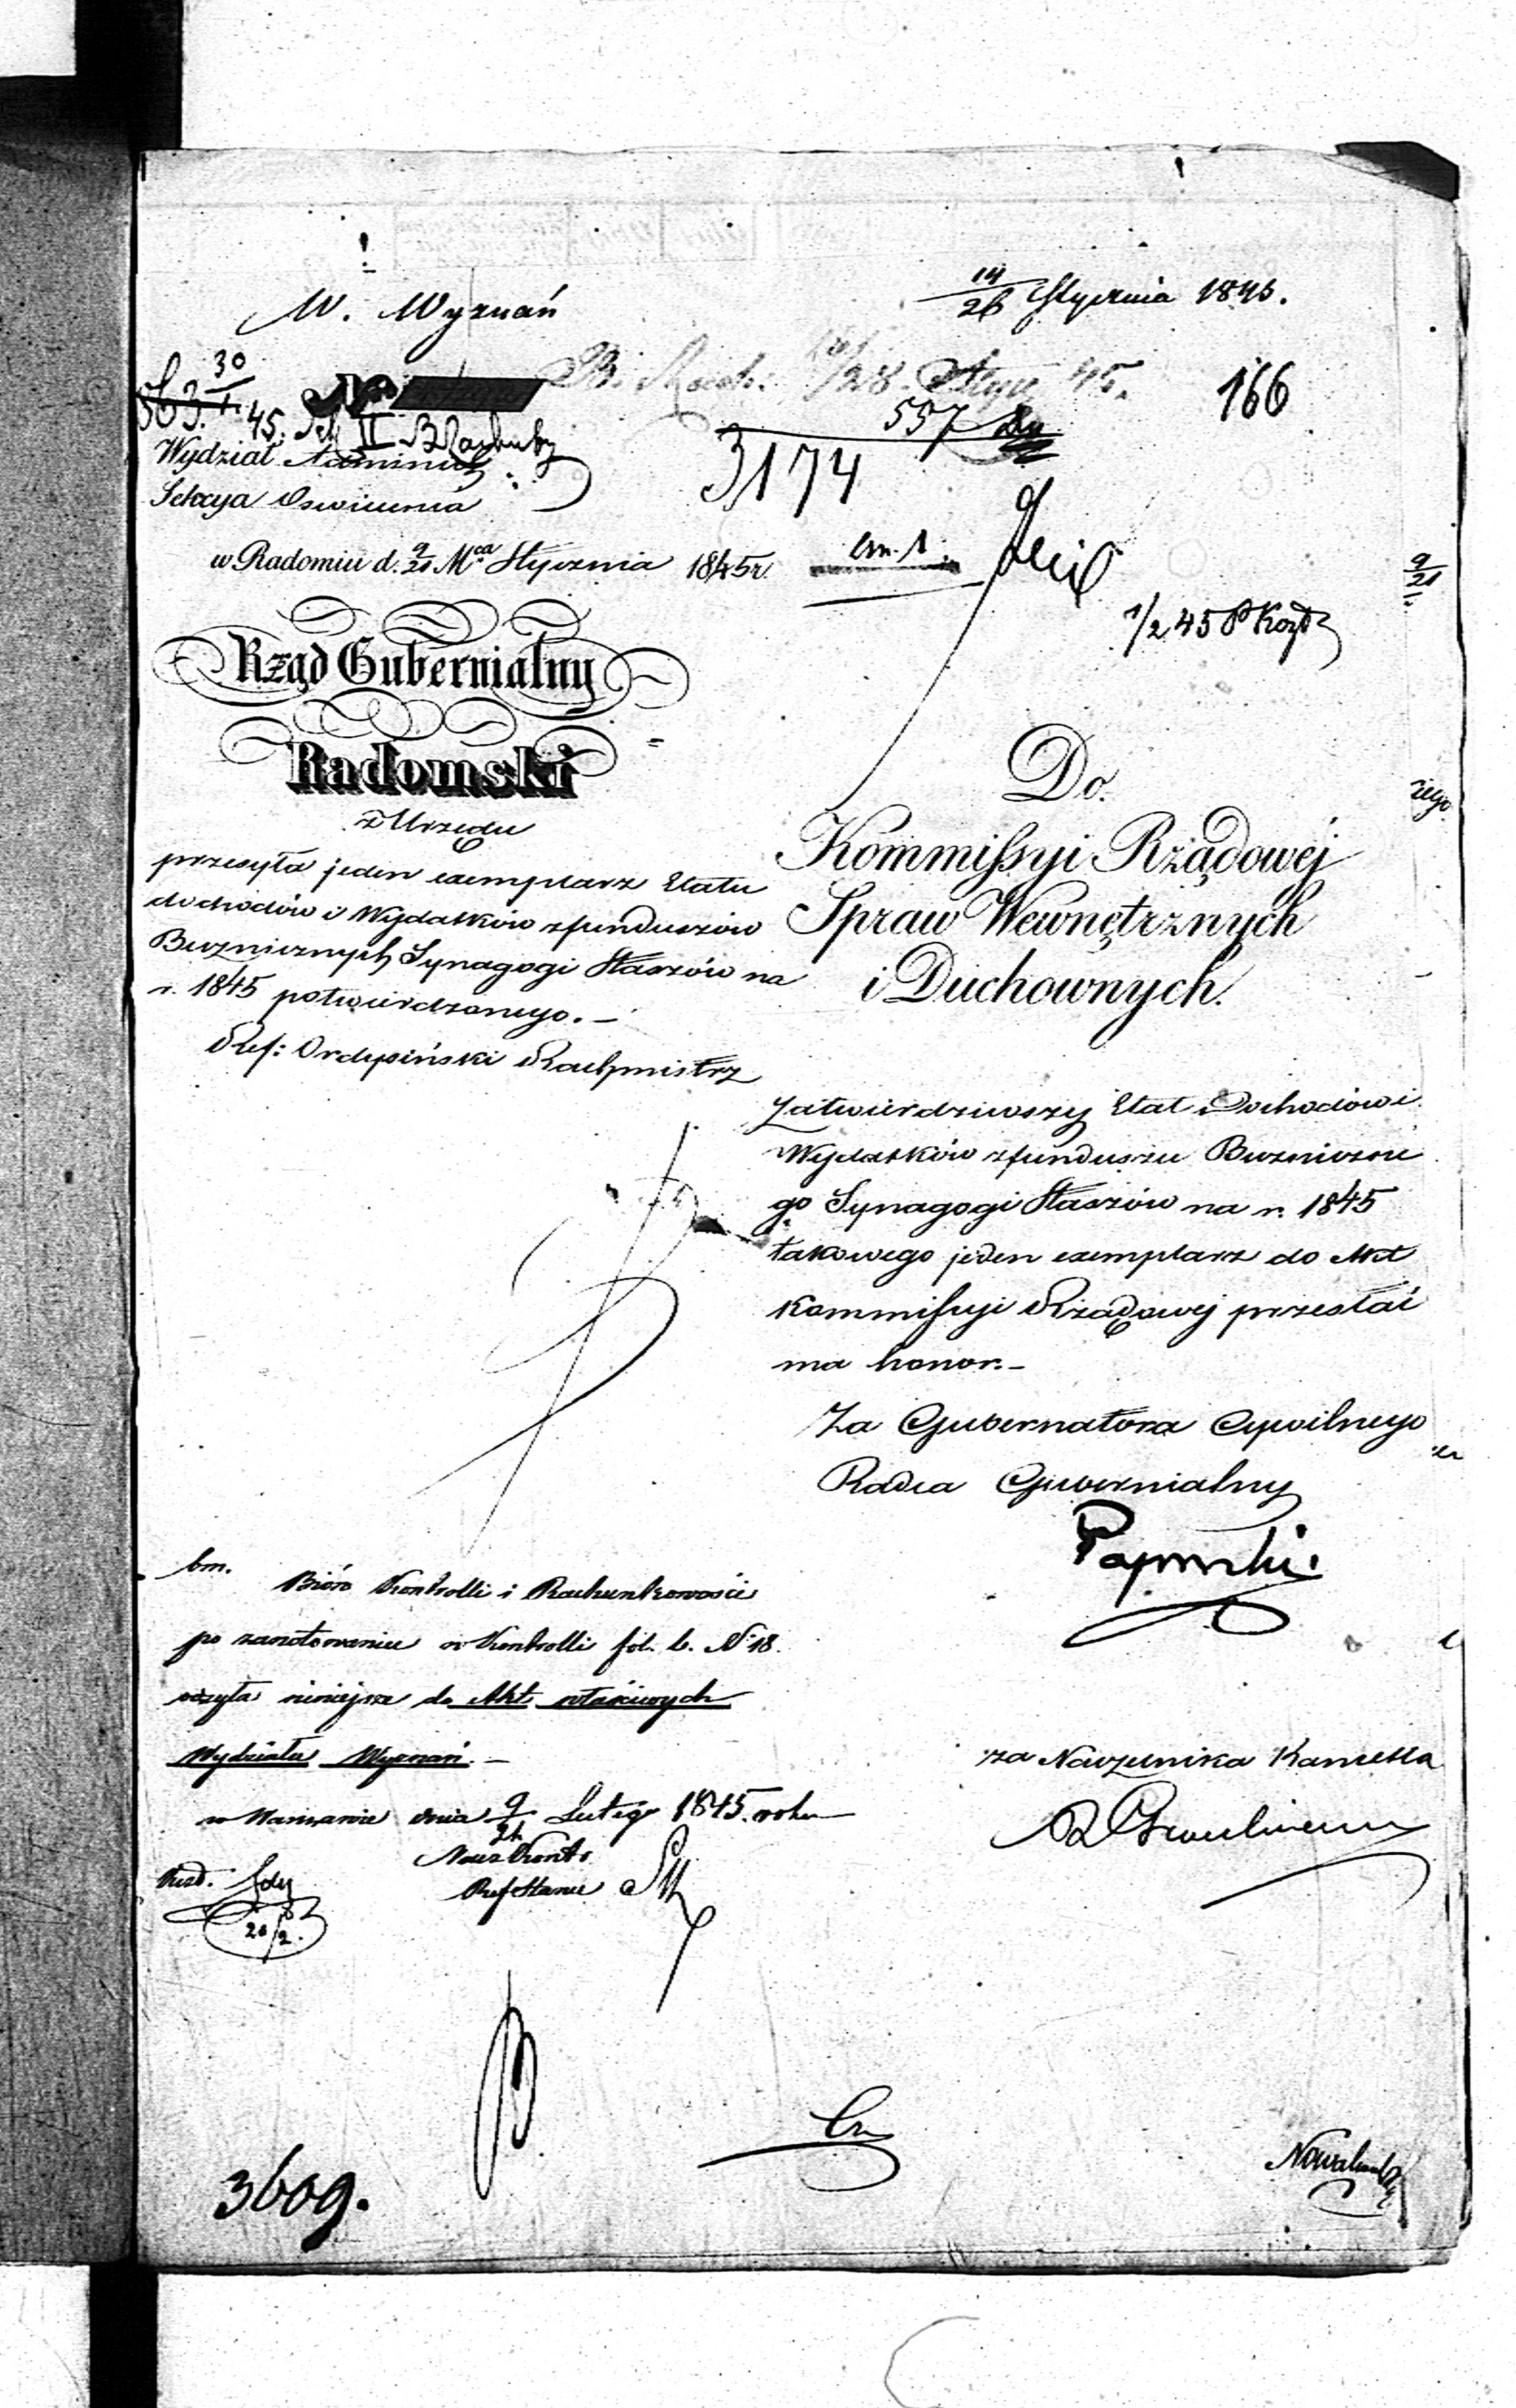 W. Wyznań
14/26 Stycznia 1845.
30
563. I. 45. II
166
557
3174
Wydział Administ:
Sekcya Oswiecenia
w Radomiu d. 9/21 Mca Stycznia 1845 r.
em. 1
9/21 I.
1/2 45
Rząd Gubernialny
Radomski
z Urzędu
przesyła jeden exemplarz Etatu
dochodów i Wydatków z funduszów
Buznicznych Synagogi Staszów na
r. 1845 potwierdzonego. —
Ref: Ordyciński Rachmistrz
Do.
Kommissyi Rządowej
Spraw Wewnętrznych
i Duchownych.
Zatwierdziwszy Etat Dochodów i
Wydatków z funduszu Buzniczne
go Synagogi Staszów na r. 1845
takowego jeden exemplarz do Akt
Kommissyi Rządowej przesłać
ma honor. —
Za Gubernatora Cywilnego
Radca Gubernialny
bm.
Bióro Kontrolli i Rachunkowości
po zanotowaniu w Kontrolli fol. b. N: 18
odsyła niniejsze do Akt właściwych
Wydziału Wyznań. —
w Warszawie dnia 9/21 Lutego 1845. roku
Nacz Kontr.
Ref Stanu
20/2.
za Naczelnika Kancella
3609.